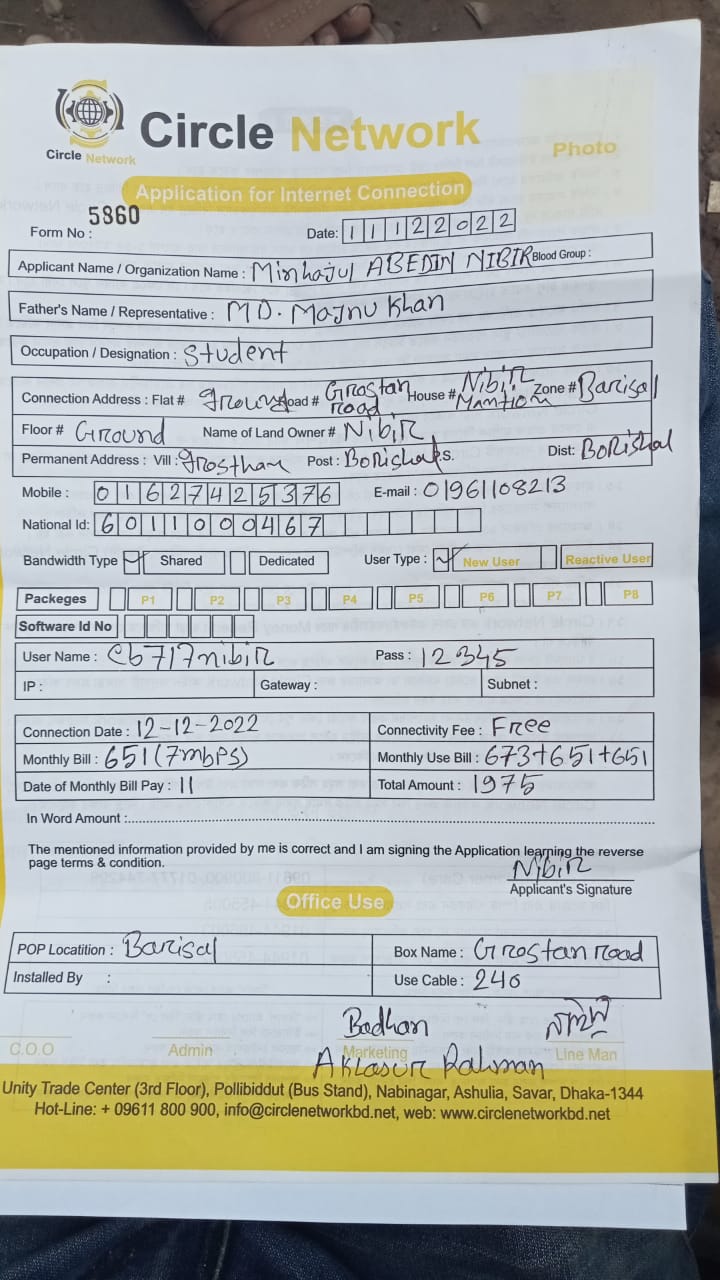 Circle Network
Circle Network
Photo
Application for Internet Connection
Form No : 5860 Date: 11122022
Applicant Name / Organization Name : Minhajul ABEDIN NIBIR Blood Group :
Father's Name / Representative : MD. Majnu Khan
Occupation / Designation : Student
Connection Address : Flat # ground Road # Grostan road House # Nibir Mantion Zone # Barisal
Floor # Ground Name of Land Owner # NibiR
Permanent Address : Vill : grosthan Post : BoRishal P.S. Dist: BoRishal
Mobile : 01627425376 E-mail : 01961108213
National Id: 6011000467
Bandwidth Type Shared Dedicated User Type : New User Reactive User
Packeges P1 P2 P3 P4 P5 P6 P7 P8
Software Id No
User Name : cb717nibiR Pass : 12345
IP : Gateway : Subnet :
Connection Date : 12-12-2022 Connectivity Fee : Free
Monthly Bill : 651(7mbps) Monthly Use Bill : 673+651+651
Date of Monthly Bill Pay : 11 Total Amount : 1975
In Word Amount :
The mentioned information provided by me is correct and I am signing the Application learning the reverse
page terms & condition.
NibiR
Applicant's Signature
Office Use
POP Locatition : Barisal Box Name : Grostan road
Installed By : Use Cable : 240
Badhan
C.O.O Admin Marketing Line Man
Aklasur Rahman
Unity Trade Center (3rd Floor), Pollibiddut (Bus Stand), Nabinagar, Ashulia, Savar, Dhaka-1344
Hot-Line: + 09611 800 900, info@circlenetworkbd.net, web: www.circlenetworkbd.net